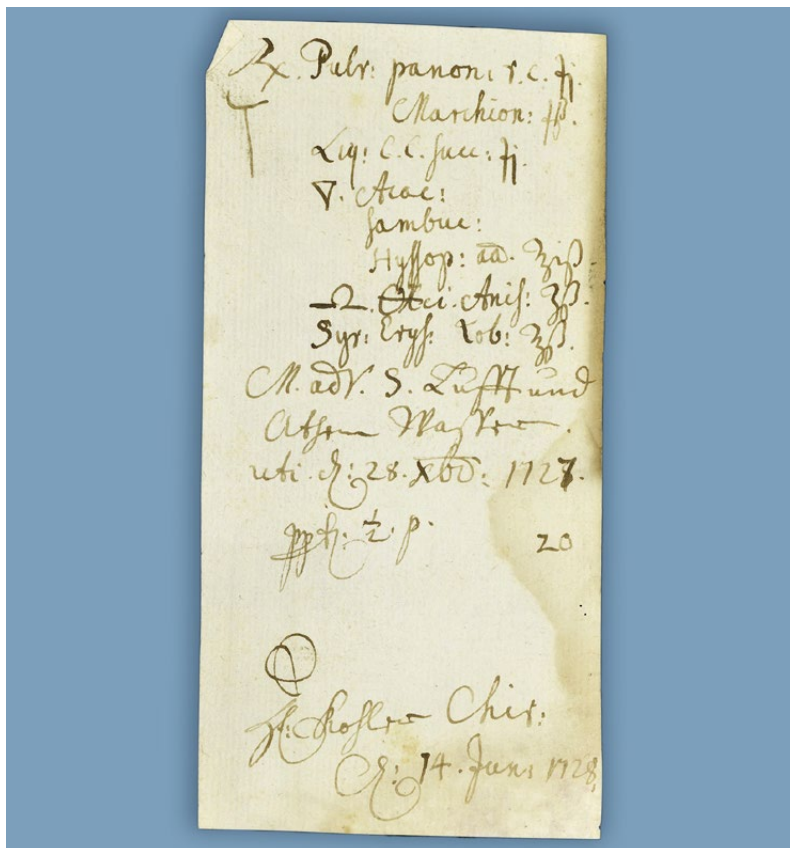 Rx. Pulv: panon: r. c. ʒj.
Marchion: ʒß.
Liq: C. C. succ: ʒj.
▽. Acac:
Sambuc:
Hyssop: aā. ℥iß.
Anis: ℥ß.
Syr: Erys: Lob: ℥ß.
M. adV. S. Lufft und
Athem Wasser.
uti. d: 28. Xbr: 1727.
½. p.
20
H: Kohler Chir:
d: 14. Juni 1728.